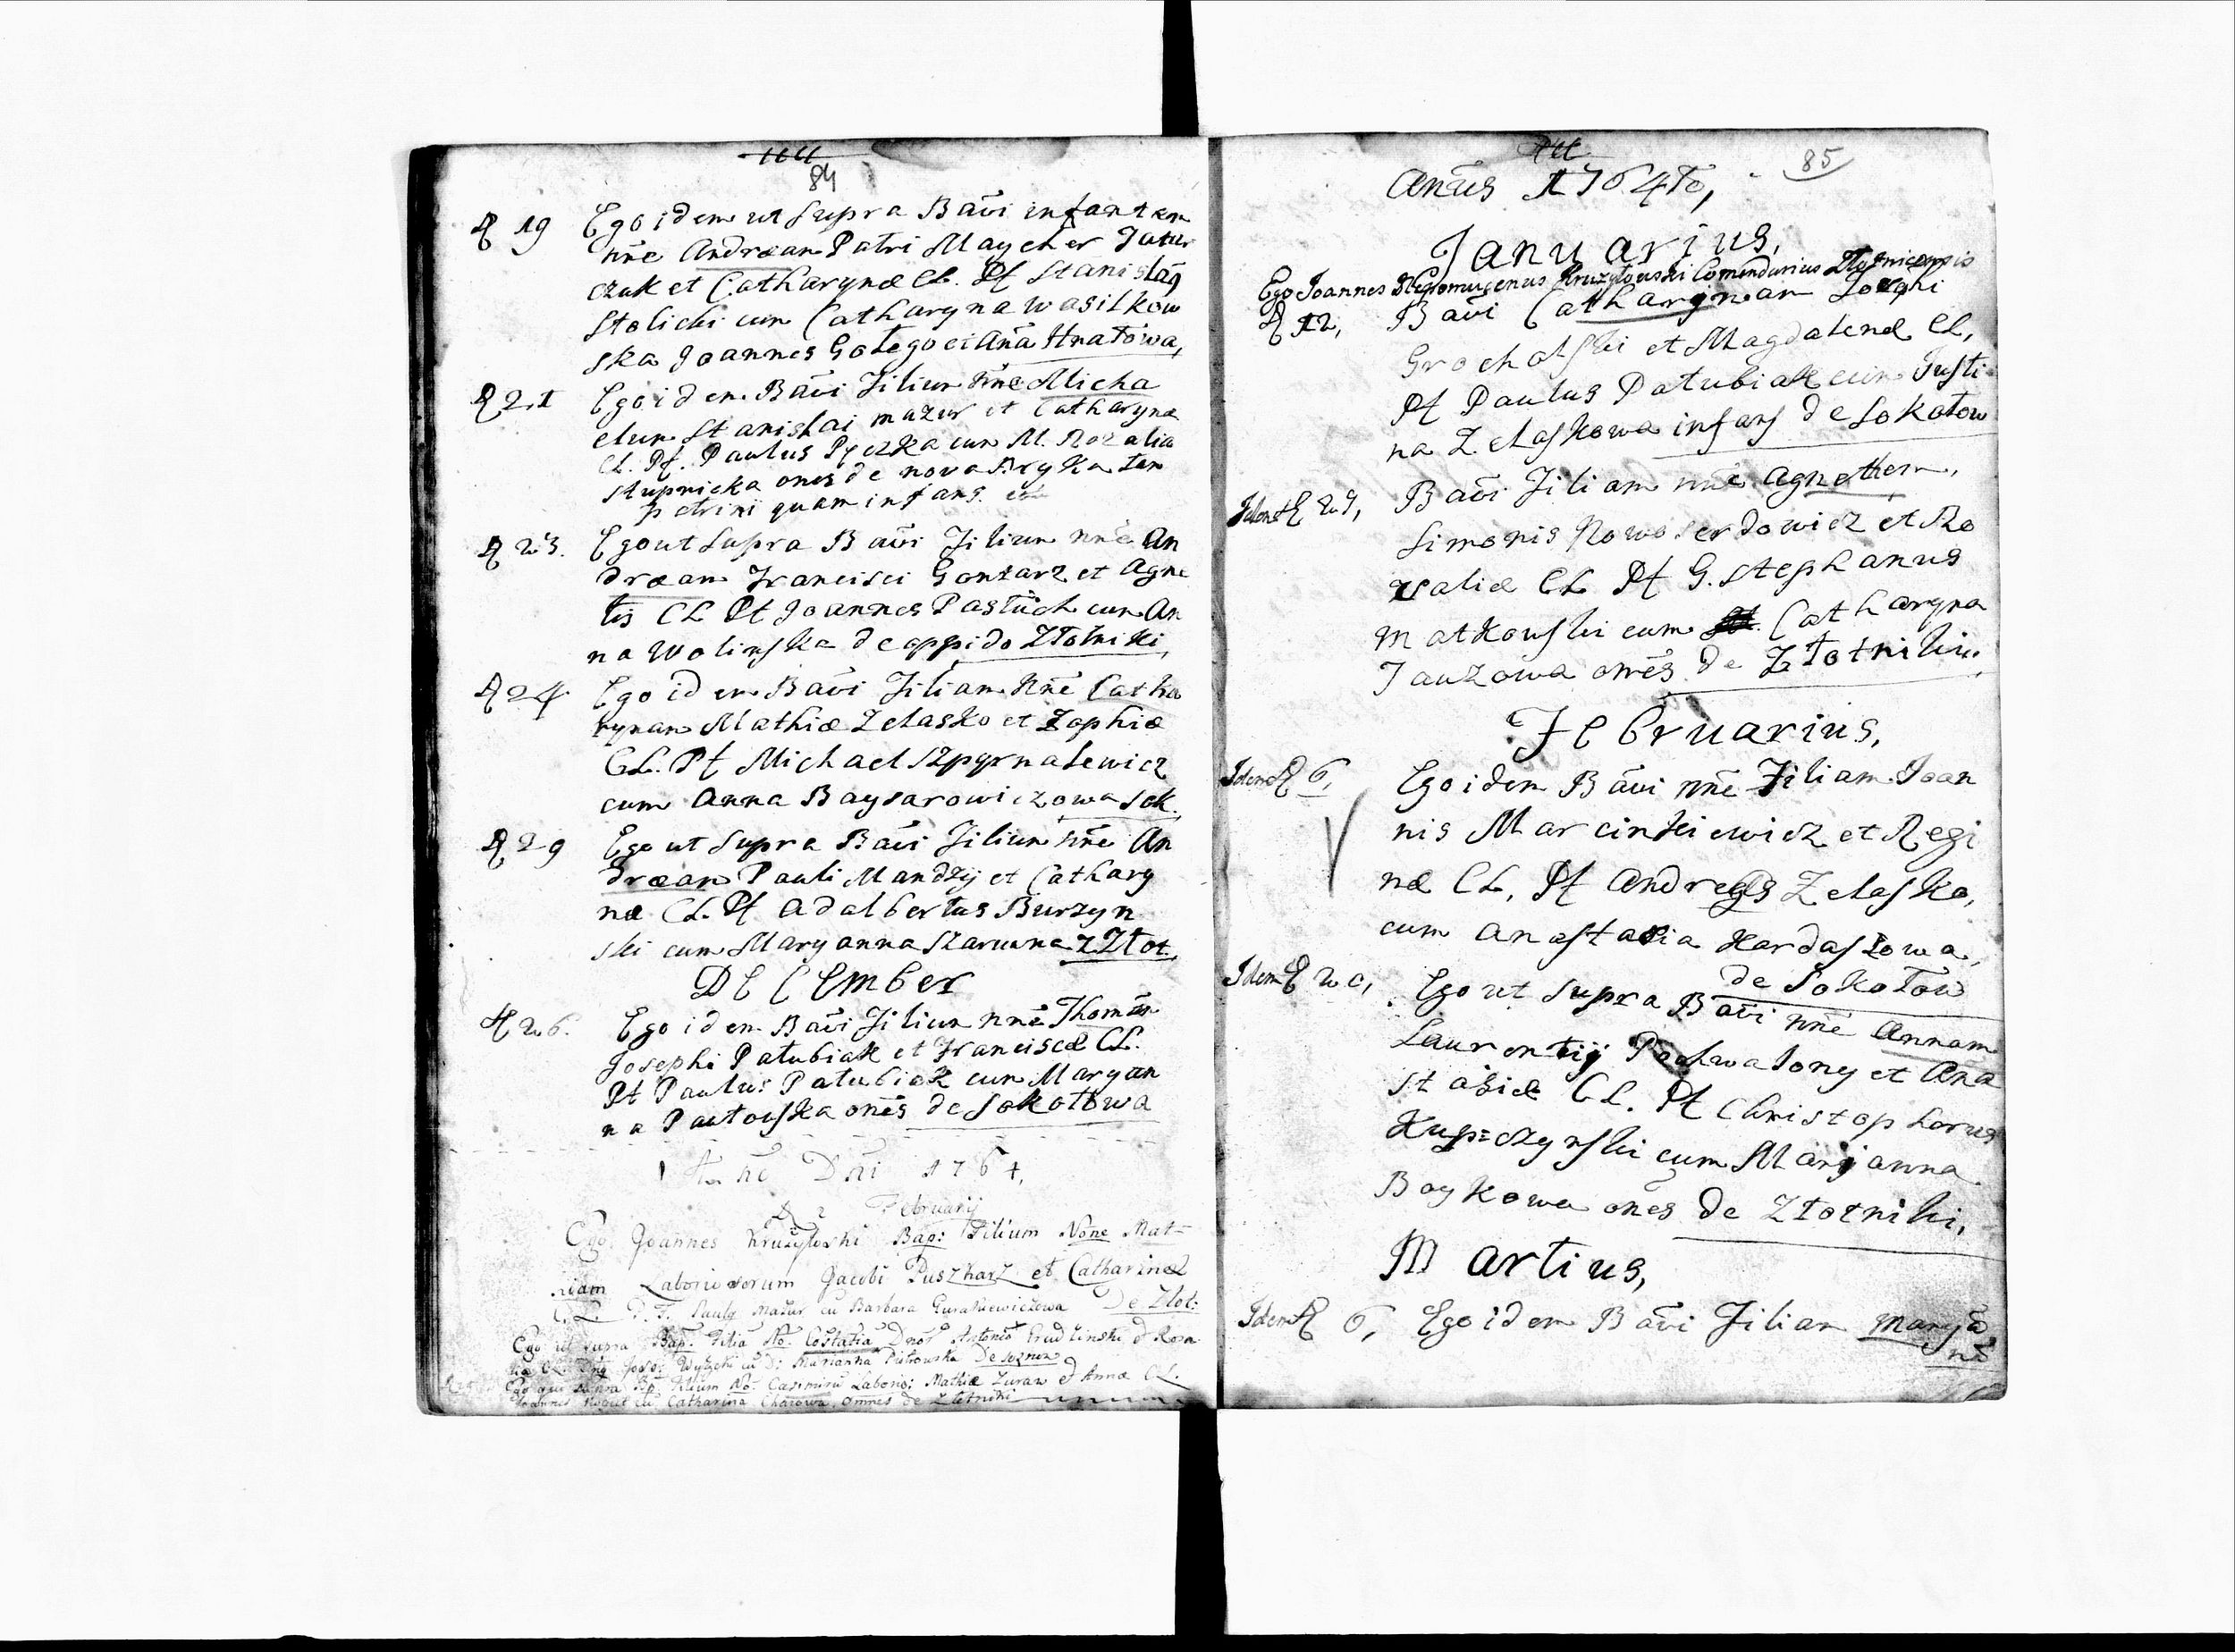 84
D 19 Ego idem ut supra Bāvi infantem
nne Andræam Patri Maycher Jatur
czuk et Catharynæ CL. Pf Stanislag
Stolicki cum Catharyna Wasilkow
ska Joannes Gołego et Aña Hnatowa,
D 21 Ego idem Bāvi Filium nne Micha
elum Stanislai Mazur et Catharynæ
CL. Pf. Paulus Pyczka cum M. Rozalia
Stupnicka ones de nova Bryka tam
petrini quam infans.
D 23. Ego ut supra Bāvi Filium nne An
dræam Francisci Gontarz et Agne
tis CL Pt Joannes Pastuch cum An
na Wolinska de oppido Złotniki,
D 24 Ego idem Bāvi Filiam Nne Catha
rynam Mathiæ Zelasko et Zophiæ
CL. Pf Michael Szpyrnalewicz
cum Anna Baysarowiczowa Sok.
D 29 Ego ut supra Bāvi Filium nne An
dræam Pauli Mandzÿ et Cathary
næ CL. Pf Adalbertus Burzyn
ski cum Maryanna Szaruwna z Złot.
DECEMber
D 26. Ego idem Bāvi Filium Nne Thomam
Josephi Patubiak et Franciscæ CL.
Pt Paulus Patubiak cum Maryan
na Pautowska ones de Sokołowa
Año Dñi 1764,
D 2 Februarij
Ego Joannes Krużyłoski Bap: Filium None Mat=
hiam Laboriosorum Jacobi Puszkarz et Catharinæ
C.L. P.F. Pauly Mazur cū Barbara Gurakiewiczowa De Złot:
Ego ut supra Bap. Filiā No. Cōstātiā Dnor Antonio Grudzinski et Rosa
liæ CL. Joseo: Wyszcki cū D: Marianna Piotrowska De
Ego qui supra Bp. Filium No. Casimirū Laborio: Mathiæ Zuraw et Annæ CL.
Joannes Kogut cū Catharina Charowa omnes de Złotniki
85
Anūs 1764to,
Januarius,
Ego Joannes Nepomucenus Kruzyłouski Comendarius Złotnicensis
D 12, Bāvi Catharynam
Grocholski et Magdalenæ CL,
Pf Paulus Patubiak cum Justi
na Zelaskowa infans de Sokołow
Idem D 27, Bāvi Filiam nne Agnethem,
Simonis Nowoserdowicz et Ro
zaliæ CL Pf G. Stephanus
Matkowski cum Catharyna
Jauzowa ones de Złotniki,
Februarius,
Idem D 6, Ego idem Bāvi nne Filiam Joan
nis Marcinkiewicz et Regi
næ CL, Pf Andreas Zelasko,
cum Anastasia Kardaszowa,
de Sokołow
Idem D 20, Ego ut supra Bāvi nne Annam
Laurentij et Ana
stasiæ CL. Pf Christophorus
Kupczynski cum Maryanna
Boykowa ones de Złotniki,
Martius,
Idem D 6, Ego idem Bāvi Filiam Maryā
nā